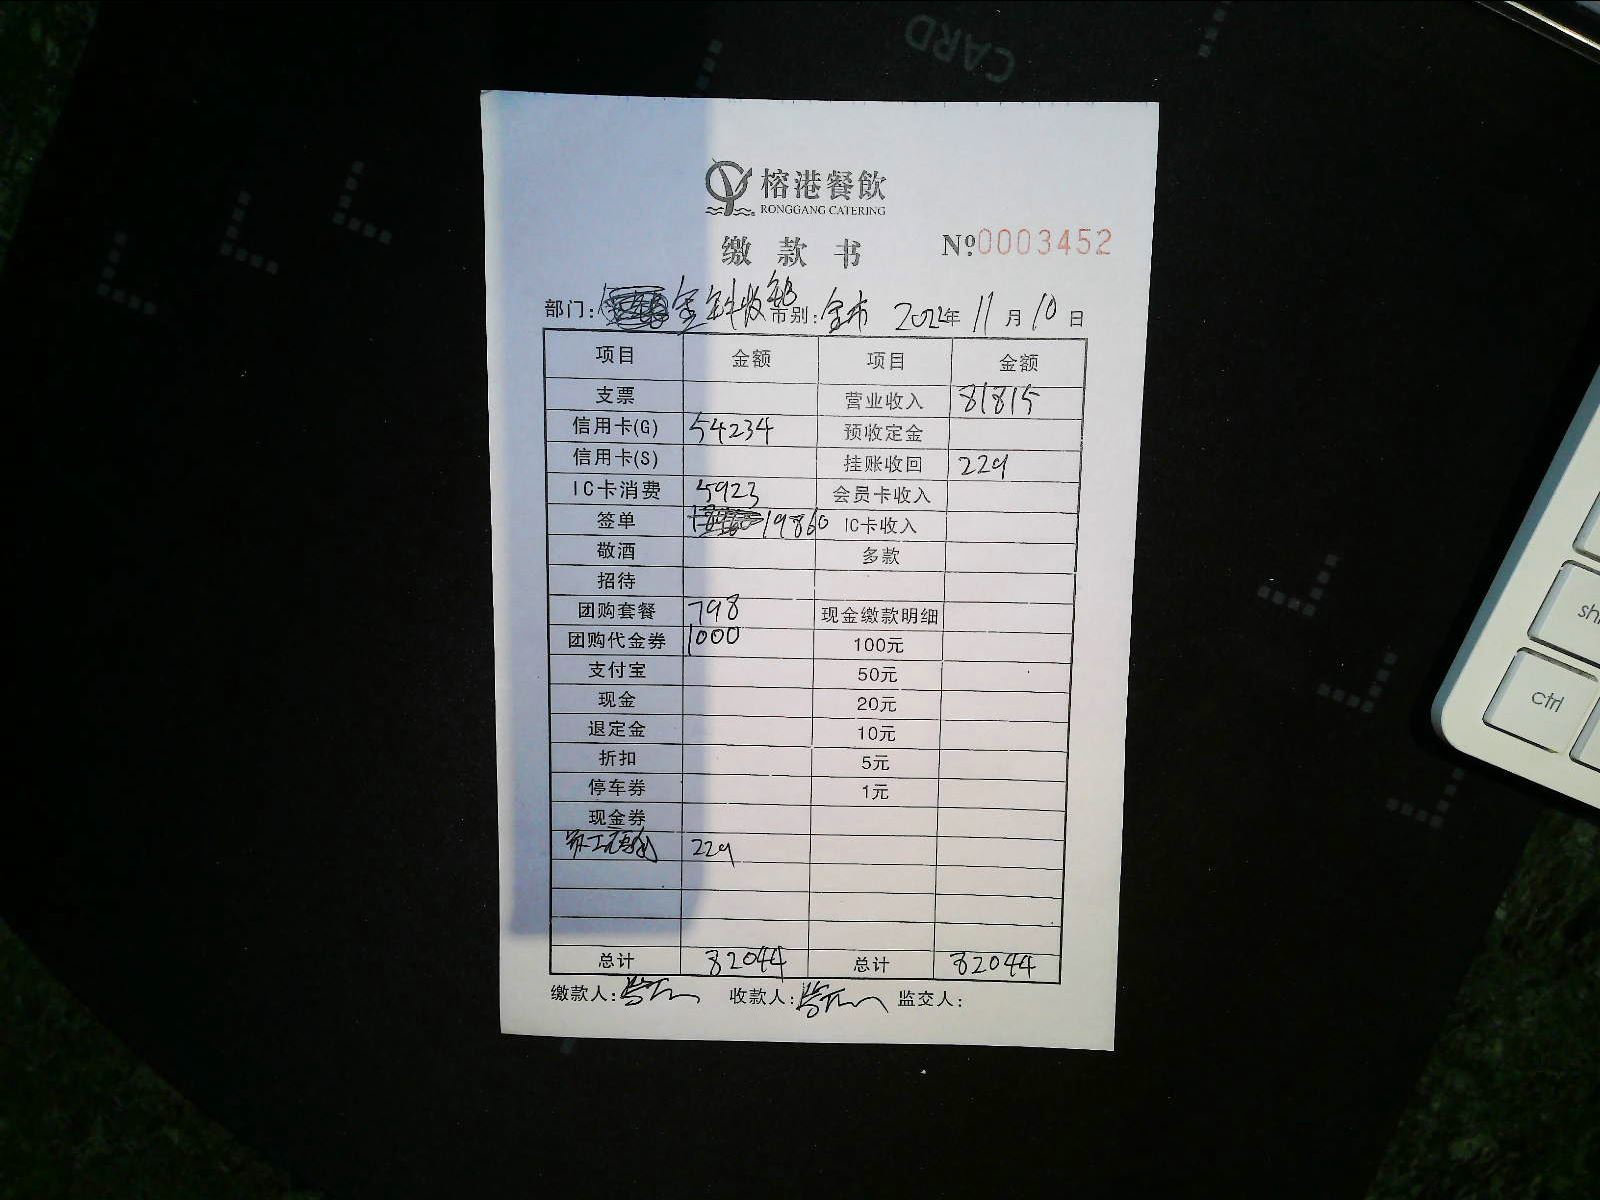 CARD
榕港餐飲
RONGGANG CATERING
缴款书 №0003452
部门: 市别:全市 2022年11月10日
项目 金额 项目 金额
支票 营业收入 81815
信用卡(G) 54234 预收定金
信用卡(S) 挂账收回 229
IC卡消费 5923 会员卡收入
签单 19860 IC卡收入
敬酒 多款
招待
团购套餐 798 现金缴款明细
团购代金券 1000 100元
支付宝 50元
现金 20元
退定金 10元
折扣 5元
停车券 1元
现金券
229
总计 82044 总计 82044
缴款人: 收款人: 监交人:
ctrl